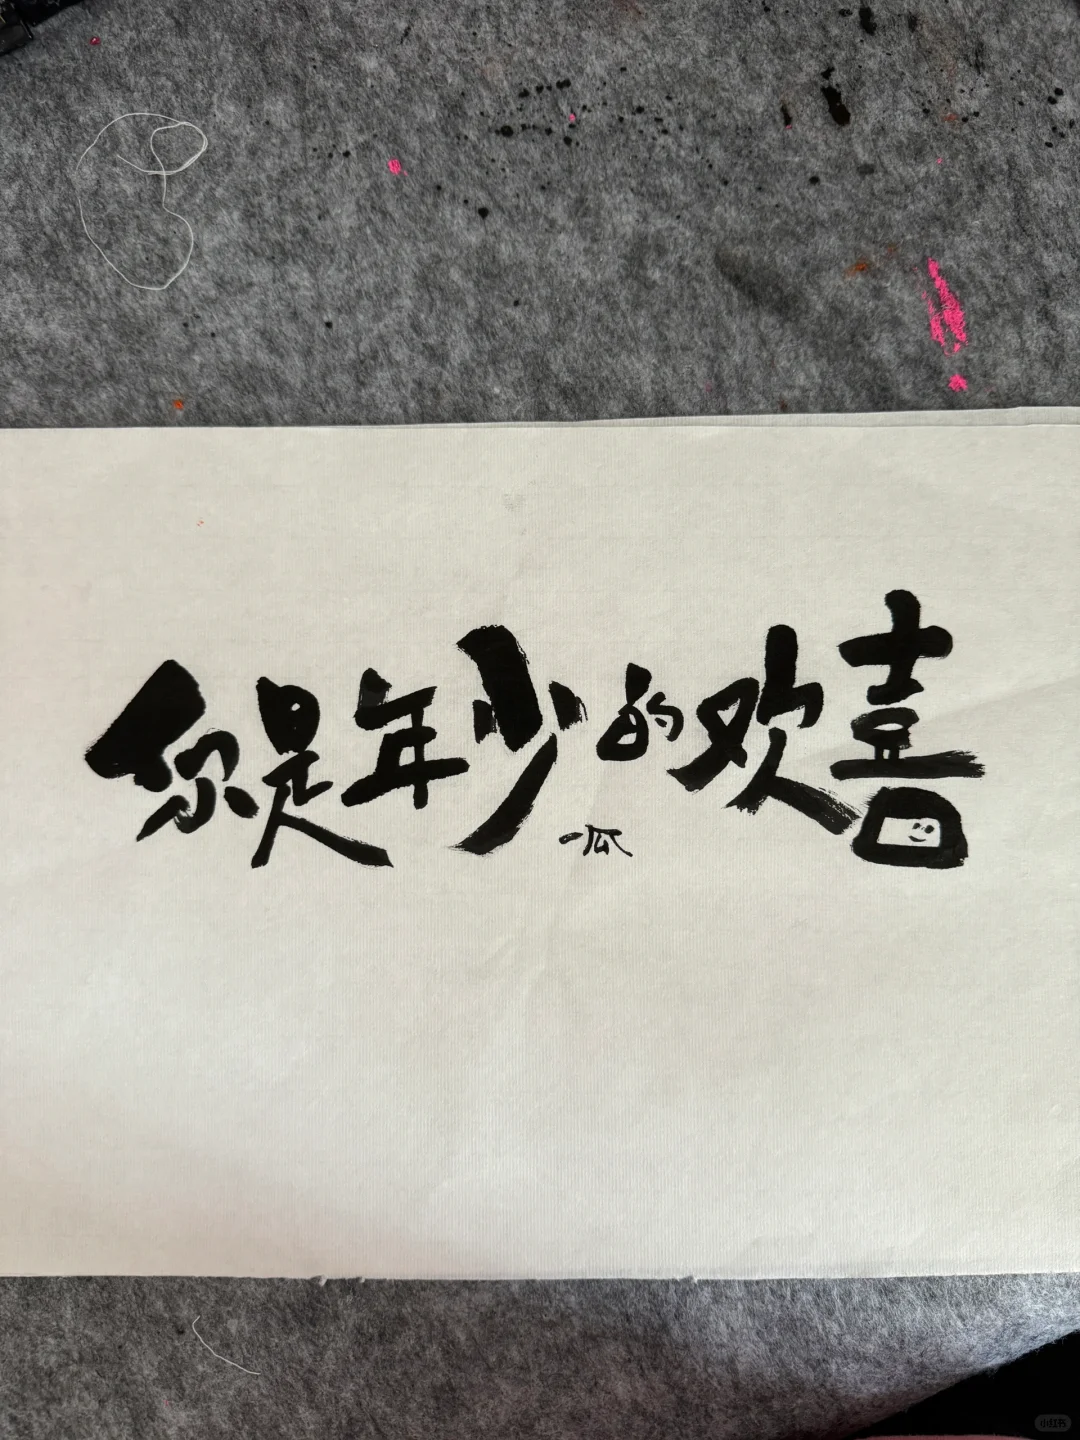 你是年少的欢喜
一瓜
小红书